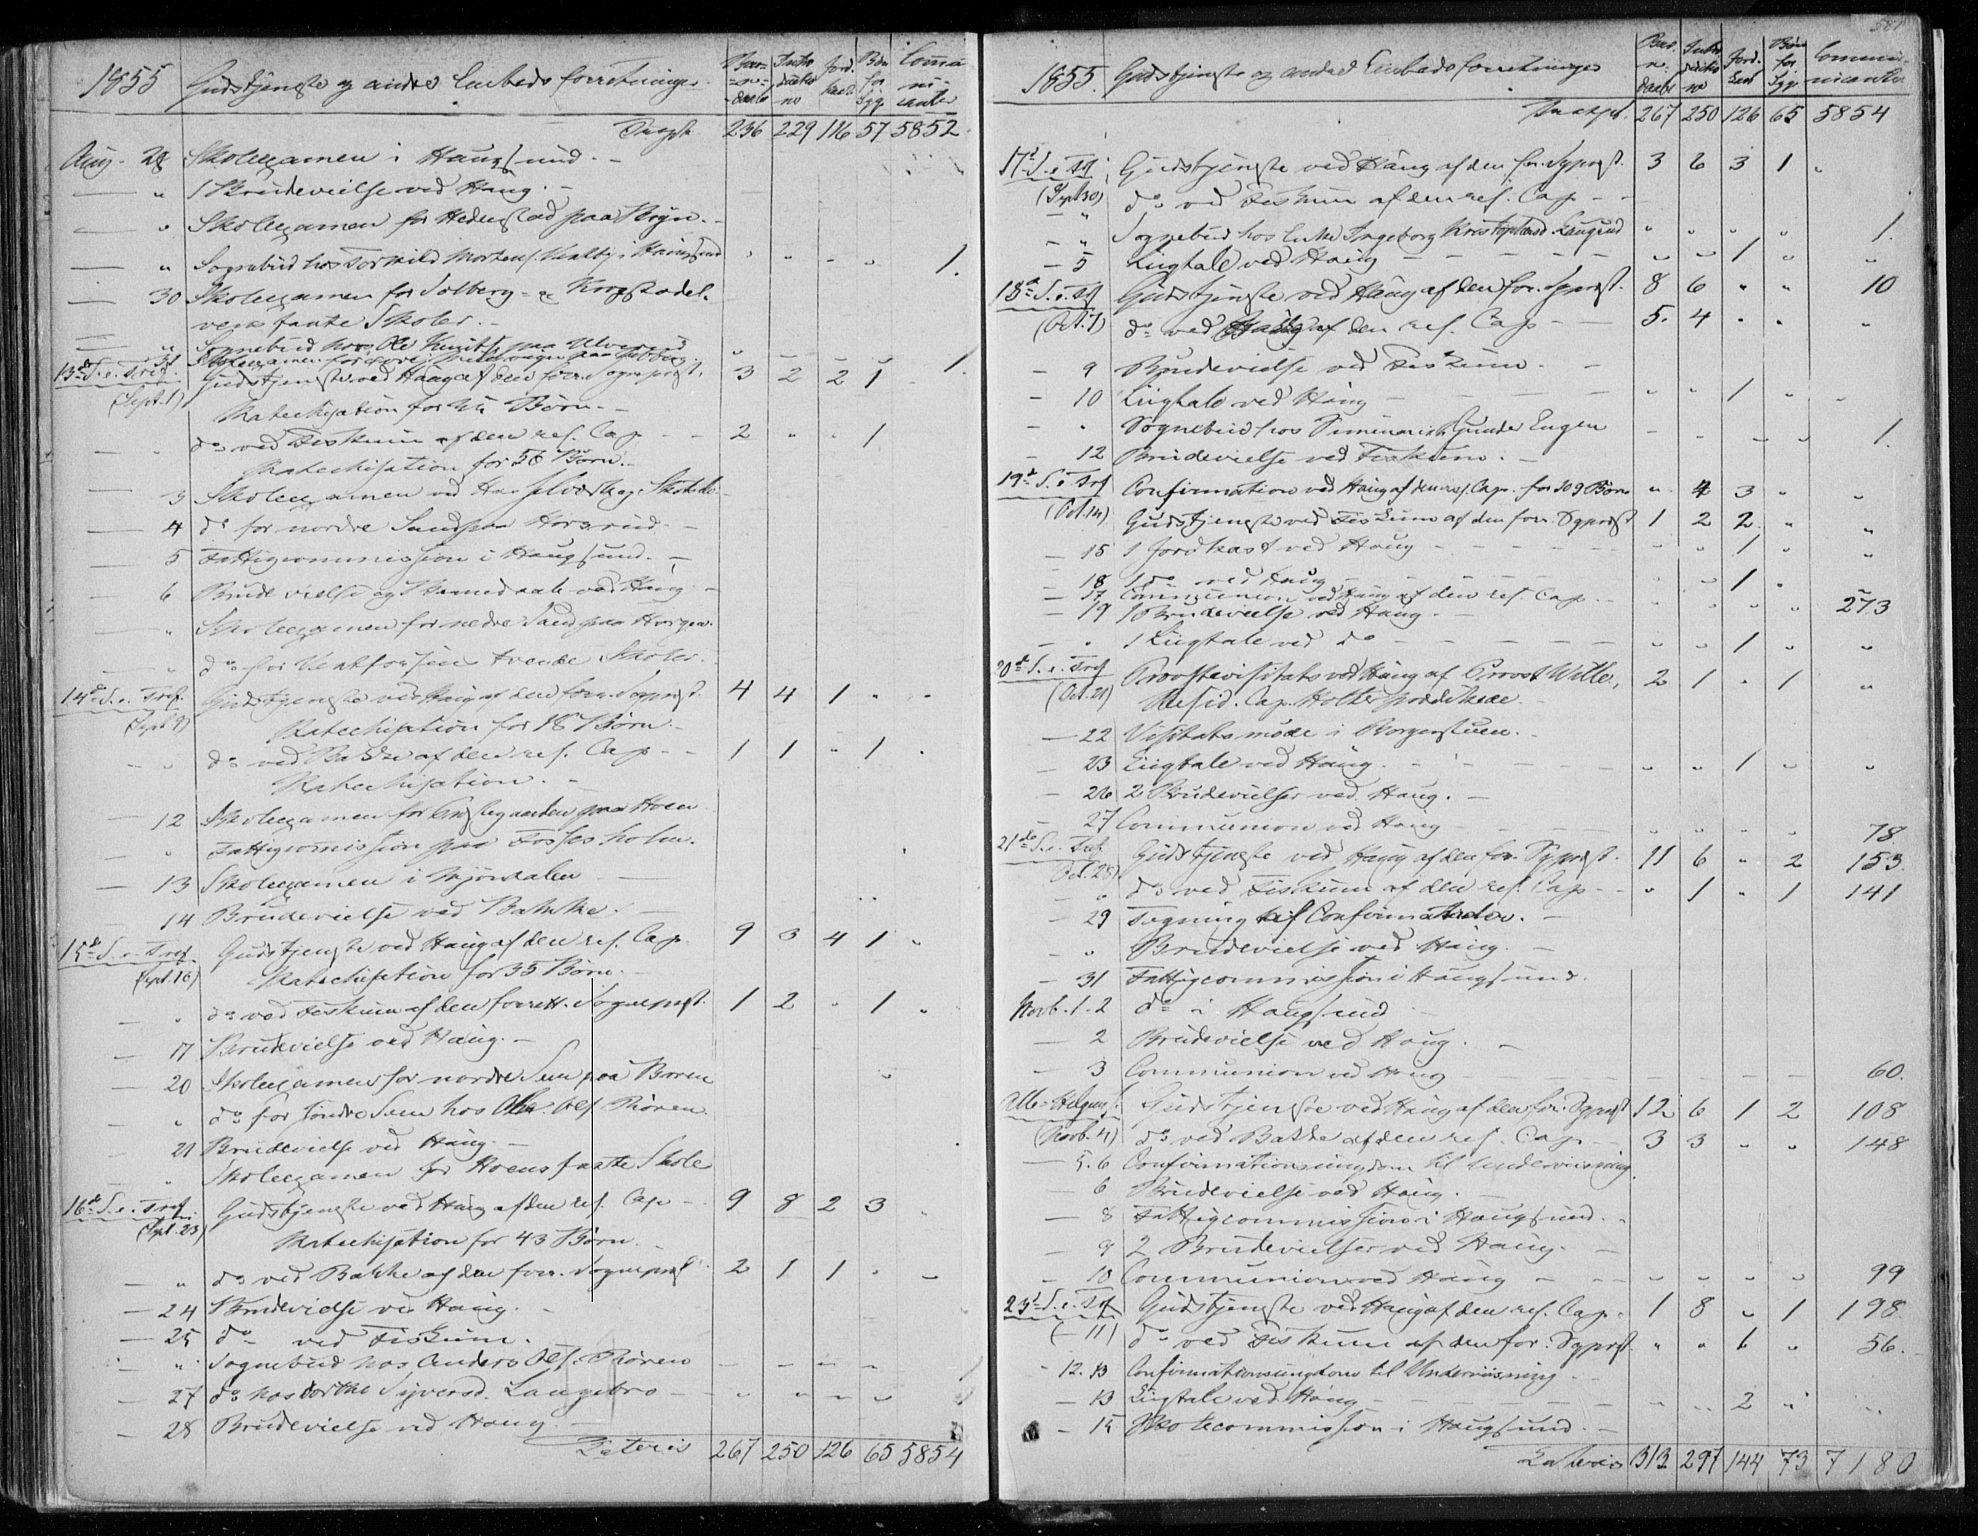 1855 Gudstjeneste og andre Embedsforretninger. Barnedaab Introductino Jordkast Bøn for Syge Communicanter
Transp. 236 229 116 57 5852
Aug. 28 Skoleexamen i Haugsund. –
— " 1 Brudevielse ved Haug. –
— " Skoleexamen for Hedenstad paa Bryn. –
— " Sognebud hos Torkild Mortens. i Haugsund " " " " 1.
— 30 Skoleexamen for Solberg- og Krogstadel-
vens faste Skoler. –
— " Sognebud hos Ole Knuts. paa Ulverud " – – – 1.
— 31 Skoleexamen for
13de S. e. Tref. Gudstjeneste ved Haug af den forr. Sogneprest. 3 2 2 1 .
(Sept. 1) Katechisation for Børn. –
— " do ved Fiskum af den res. Cap. – – 2 " " 1
Katechisation for 56 Børn. –
— 3 Skoleexamen ved
— 4 do for nordre Sand paa Horsrud. –
— 5 Fattigcommission i Haugsund. –
— 6 Brudevielse og ved Haug –
— " Skoleexamen for nedre Sand paa Horgen.
— " do for Vestfossens tvende Skoler.
14de S. e. Tref. Gudstjeneste ved Haug af den forr. Sogneprest. 4 4 1 " "
(Sept. 9) Katechisation for 18 Børn. –
— " do ved Bakke af den res. Cap. – – 1 1 " 1 .
Katechisation. –
— 12 Skoleexamen for paa Hoen
— " Fattigcommission paa Fossesholm.
— 13 Skoleexamen i Mjøndalen –
— 14 Brudevielse ved Bakke. –
15de S. e. Tref. Gudstjeneste ved Haug af den res. Cap. 9 3 4 1 "
(Sept. 16) Katechisation for 35 Børn. –
— " do ved Fiskum af den forrett. Sogneprest. 1 2 " 1 "
— 17 Brudevielse ved Haug. –
— 20 Skoleexamen for nordre Sem paa Boren
— " do for søndre Sem hos Ols. Røren
— 21 Brudevielse ved Haug. –
— " Skoleexamen for Hoens faste Skole
16de S. e. Tref. Gudstjeneste ved Haug af den res. Cap – 9 8 2 3
(Sept. 23) Katechisation for 43 Børn.
— " do ved Bakke af den forr. Sogneprest 2 1 1 " "
— 24 1 Brudevielse ved Haug. –
— 25 do ved Fiskum.
— " Sognebud hos Anders Ols. Røren – – – –
— 27 do hos Dorthe Syversd. Langebro – " " " "
— 28 Brudevielse ved Haug. –
Lateris 267 250 126 65 5854
581
1855. Gudstjeneste og andre Embedsforretninger Barnedaab Introductino Jordkast Bøn for Syge Communicanter
Transp. 267 250 126 65 5854
17de S. e. Tref. Gudstjeneste ved Haug af den for. Sgprst. 3 6 3 1 "
(Sept. 30) do ved Fiskum af den res. Cap – –
— " Sognebud hos Enke Ingeborg Kristophersd. Langrud " " " " 1.
— 5 Liigtale ved Haug – – – – – " " 1 " "
18de S. e. Tref. Gudstjeneste ved Haug af den for. Sgprst. 8 6 " " 10
(Oct. 7) do ved af den res. Cap – – 5. 4 " " "
— 9 Brudevielse ved Fiskum. –
— 10 Liigtale ved Haug – – – – " " 1 " "
— " Sognebud hos Seminarist Gunder Engen – – – – 1.
— 12 Brudevielse ved Fiskum. –
19de S. e. Tref. Confirmation ved Haug af den res. Cap. for 109 Børn " 4 3 " "
(Oct. 14) Gudstjeneste ved Fiskum af den forr. Sgprst 1 2 2 " "
— 15 1 Jordkast ved Haug – – – – " " 1 " "
— 18 1 do ved Haug – – – " " 1 "
— 17 Communion ved Haug af den res. Cap – – " " " " 273
— 19 1 Brudevielse ved Haug. –
— " 1 Liigtale ved do – – – – " " 1 " "
20de S. e. Tref. Provstevisitats ved Haug af Provst Wille, 2 1 " 1 "
(Oct. 21) Resid. Cap. Holter prædikede.
— 22 Visitatsmøde i Borgestuen. –
— 23 Liigtale ved Haug. – – – – " " 1 " "
— 26 2 Brudevielser ved Haug. –
— 27 Communion ved Haug – – – – " " " " 78
21de S. e. Tref. Gudstjeneste ved Haug af den for. Sgprest. 11 6 " 2 153
(Oct. 28) do ved Fiskum af den res. Cap – – " 1 " 1 141
— 29 Tegning af Confirmander. –
— " Brudevielse ved Haug. –
— 31 Fattigcommission i Haugsund.
Novb. 1. 2 do i Haugsund
— 2 Brudevielse ved Haug. –
— 3 Communion ved Haug – – – – – – – – 60.
Alle-Helgens f. Gudstjeneste ved Haug af den for. Sgprst 12 6 1 2 108
(Novb. 4) do ved Bakke af den res. Cap. – 3 3 " " 148
— 5. 6 Confirmationsungdom til Underviisning.
— 6 Brudevielse ved Haug. –
— 8 Fattigcommission i Haugsund. –
— 9 2 Brudevielser ved Haug. –
— 10 Communion ved Haug – – – " " " " 99
23de S. e. Tref. Gudstjeneste ved Haug af den res. Cap. 1 8 " 1 198
(– 11) do ved Fiskum af den for. Sgprst. " " 6 " 56.
— 12. 13 Confirmationsungdom til Underviisning. –
— 13 Liigtale ved Haug – – – – – " " 2 " "
— 15 Skolecommission i Haugsund. –
Lateris 313 297 144 73 7180